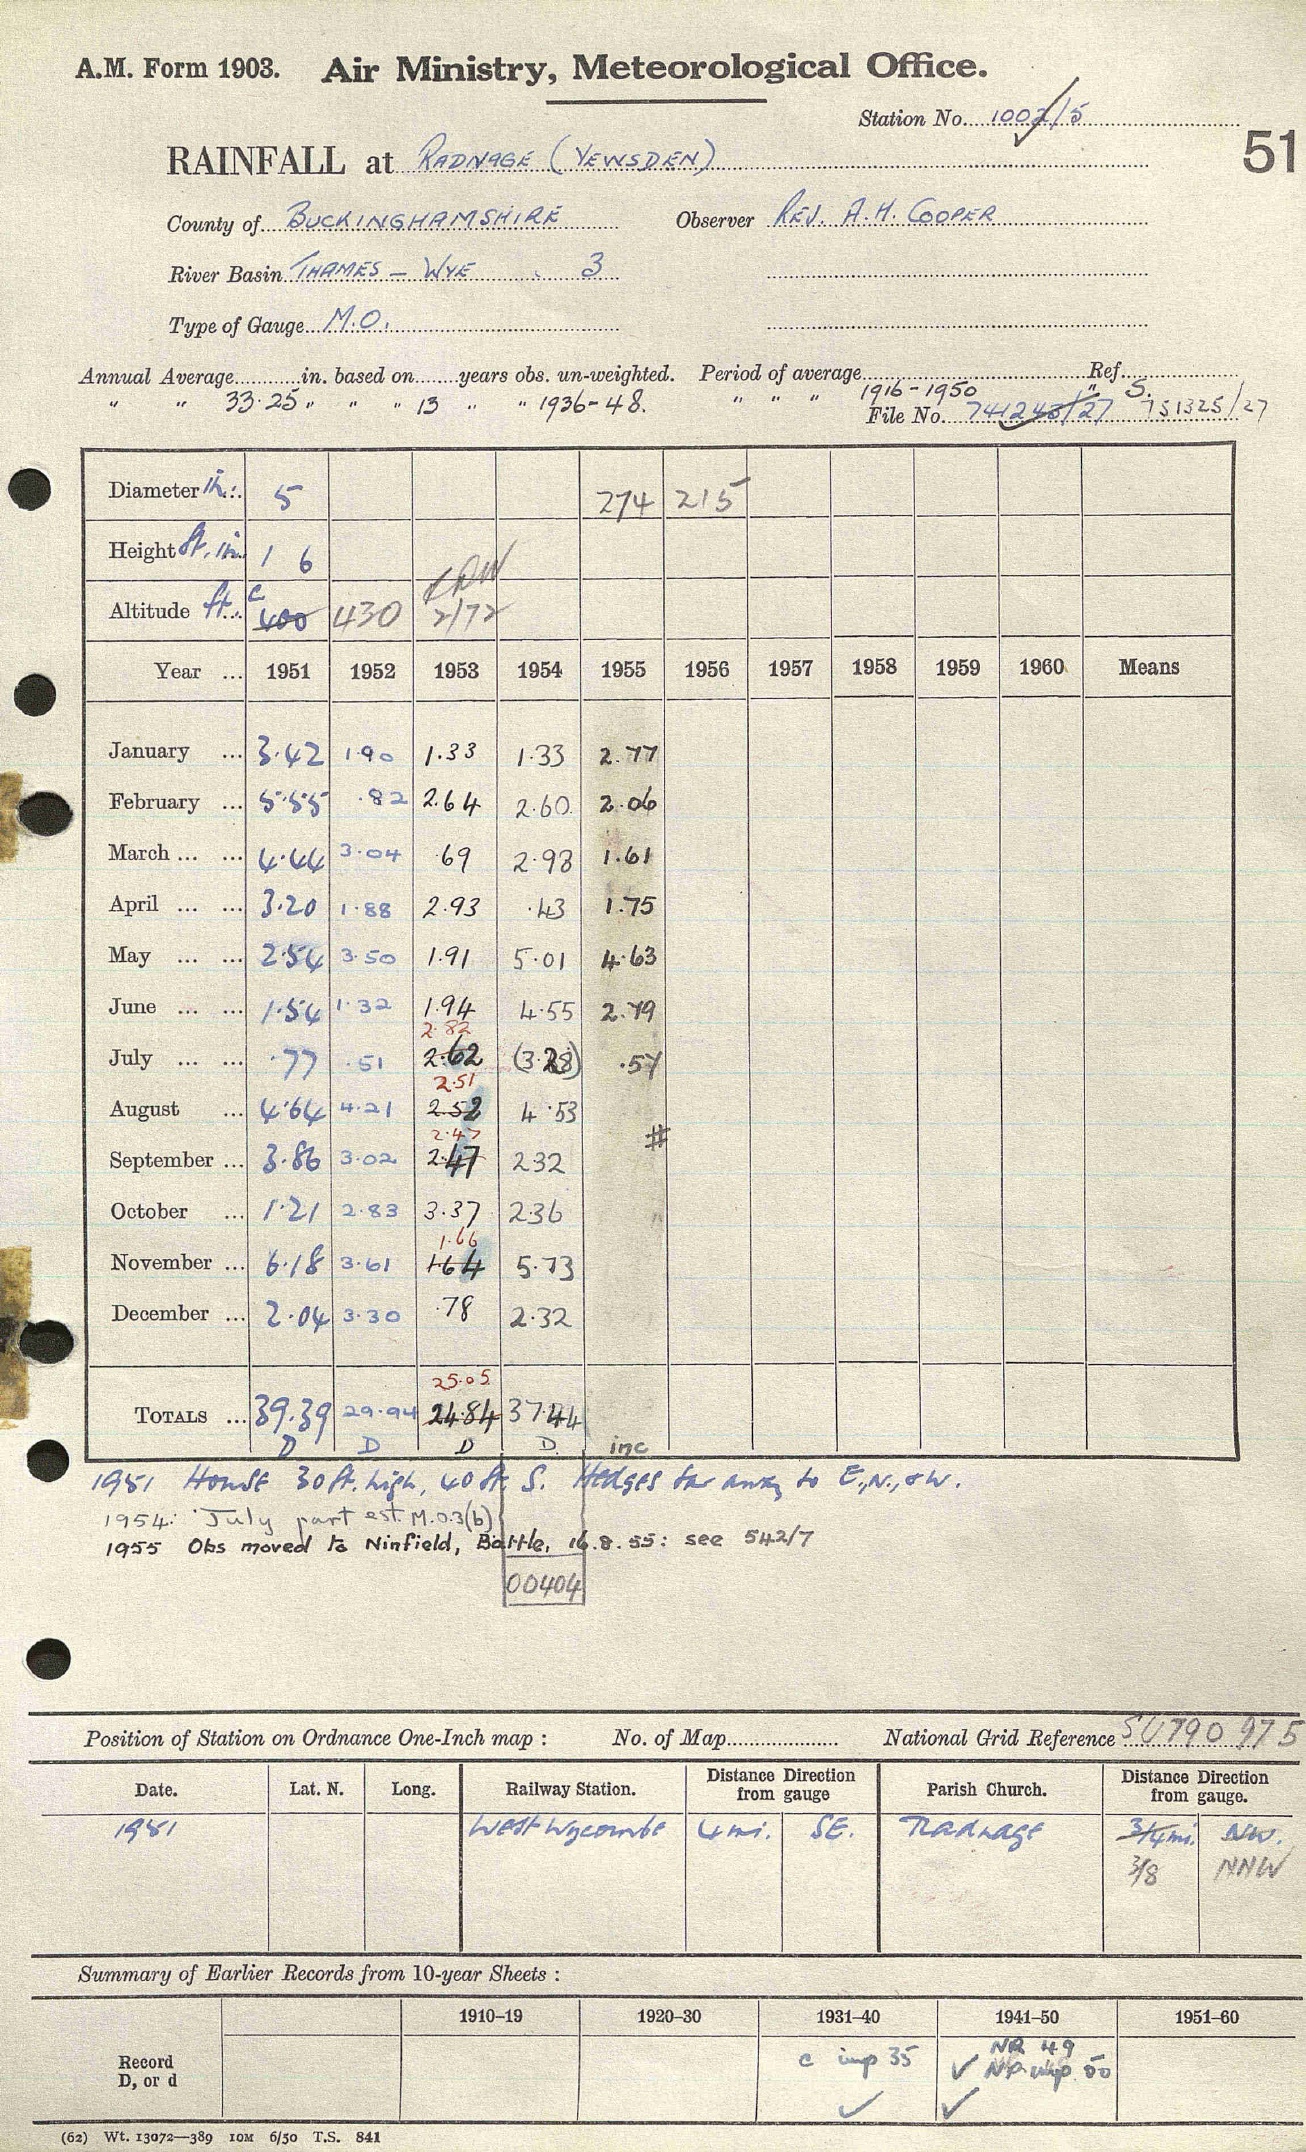 A.M. Form 1903. Air Ministry, Meteorological Office.
Station No. 1002/5
51
RAINFALL at RADNAGE (YEWSDEN)
County of BUCKINGHAMSHIRE Observer REV. A.H. COOPER
River Basin THAMES — WYE 3
Type of Gauge M.O.
Annual Average in. based on years obs. un-weighted. Period of average Ref.
" " 33.25 " " " 13 " " 1936-48. " " " 1916-1950 " S.
File No. 741243/27 751325/27
Diameter in. 5 274 215
Height ft. in. 1 6
Altitude ft. c 400 430 2/72
Year ... 1951 1952 1953 1954 1955 1956 1957 1958 1959 1960 Means
January ... 3.42 1.90 1.33 1.33 2.77
February ... 5.55 .82 2.64 2.60 2.06
March ... ... 4.44 3.04 .69 2.98 1.61
April ... ... 3.20 1.88 2.93 .43 1.75
May ... ... 2.54 3.50 1.91 5.01 4.63
June ... ... 1.54 1.32 1.94 4.55 2.79
2.82
July ... ... .77 .51 2.62 (3.28) .57
2.51
August ... 4.64 4.21 2.52 4.53
2.47 #
September ... 3.86 3.02 2.47 2.32
October ... 1.21 2.83 3.37 2.36
1.66
November ... 6.18 3.61 1.64 5.73
December ... 2.04 3.30 .78 2.32
25.05
TOTALS ... 39.39 29.94 24.84 37.44
D D D D inc
1951 House 30 ft. high, 40 ft. S. Hedges far away to E., N., & W.
1954: July part est. M.O.3(b)
1955 Obs moved to Ninfield, Battle, 16.8.55: see 542/7
00404
Position of Station on Ordnance One-Inch map : No. of Map National Grid Reference SU 790 975
Date. Lat. N. Long. Railway Station. Distance from gauge Direction Parish Church. Distance from gauge. Direction
1951 West Wycombe 4 mi. SE. Radnage 3/4 mi. NW.
3/8 NNW
Summary of Earlier Records from 10-year Sheets :
1910–19 1920–30 1931–40 1941–50 1951–60
Record D, or d c imp 35 NR 49
✓ NR imp. 50
✓ ✓
(62) Wt. 13072—389 10M 6/50 T.S. 841